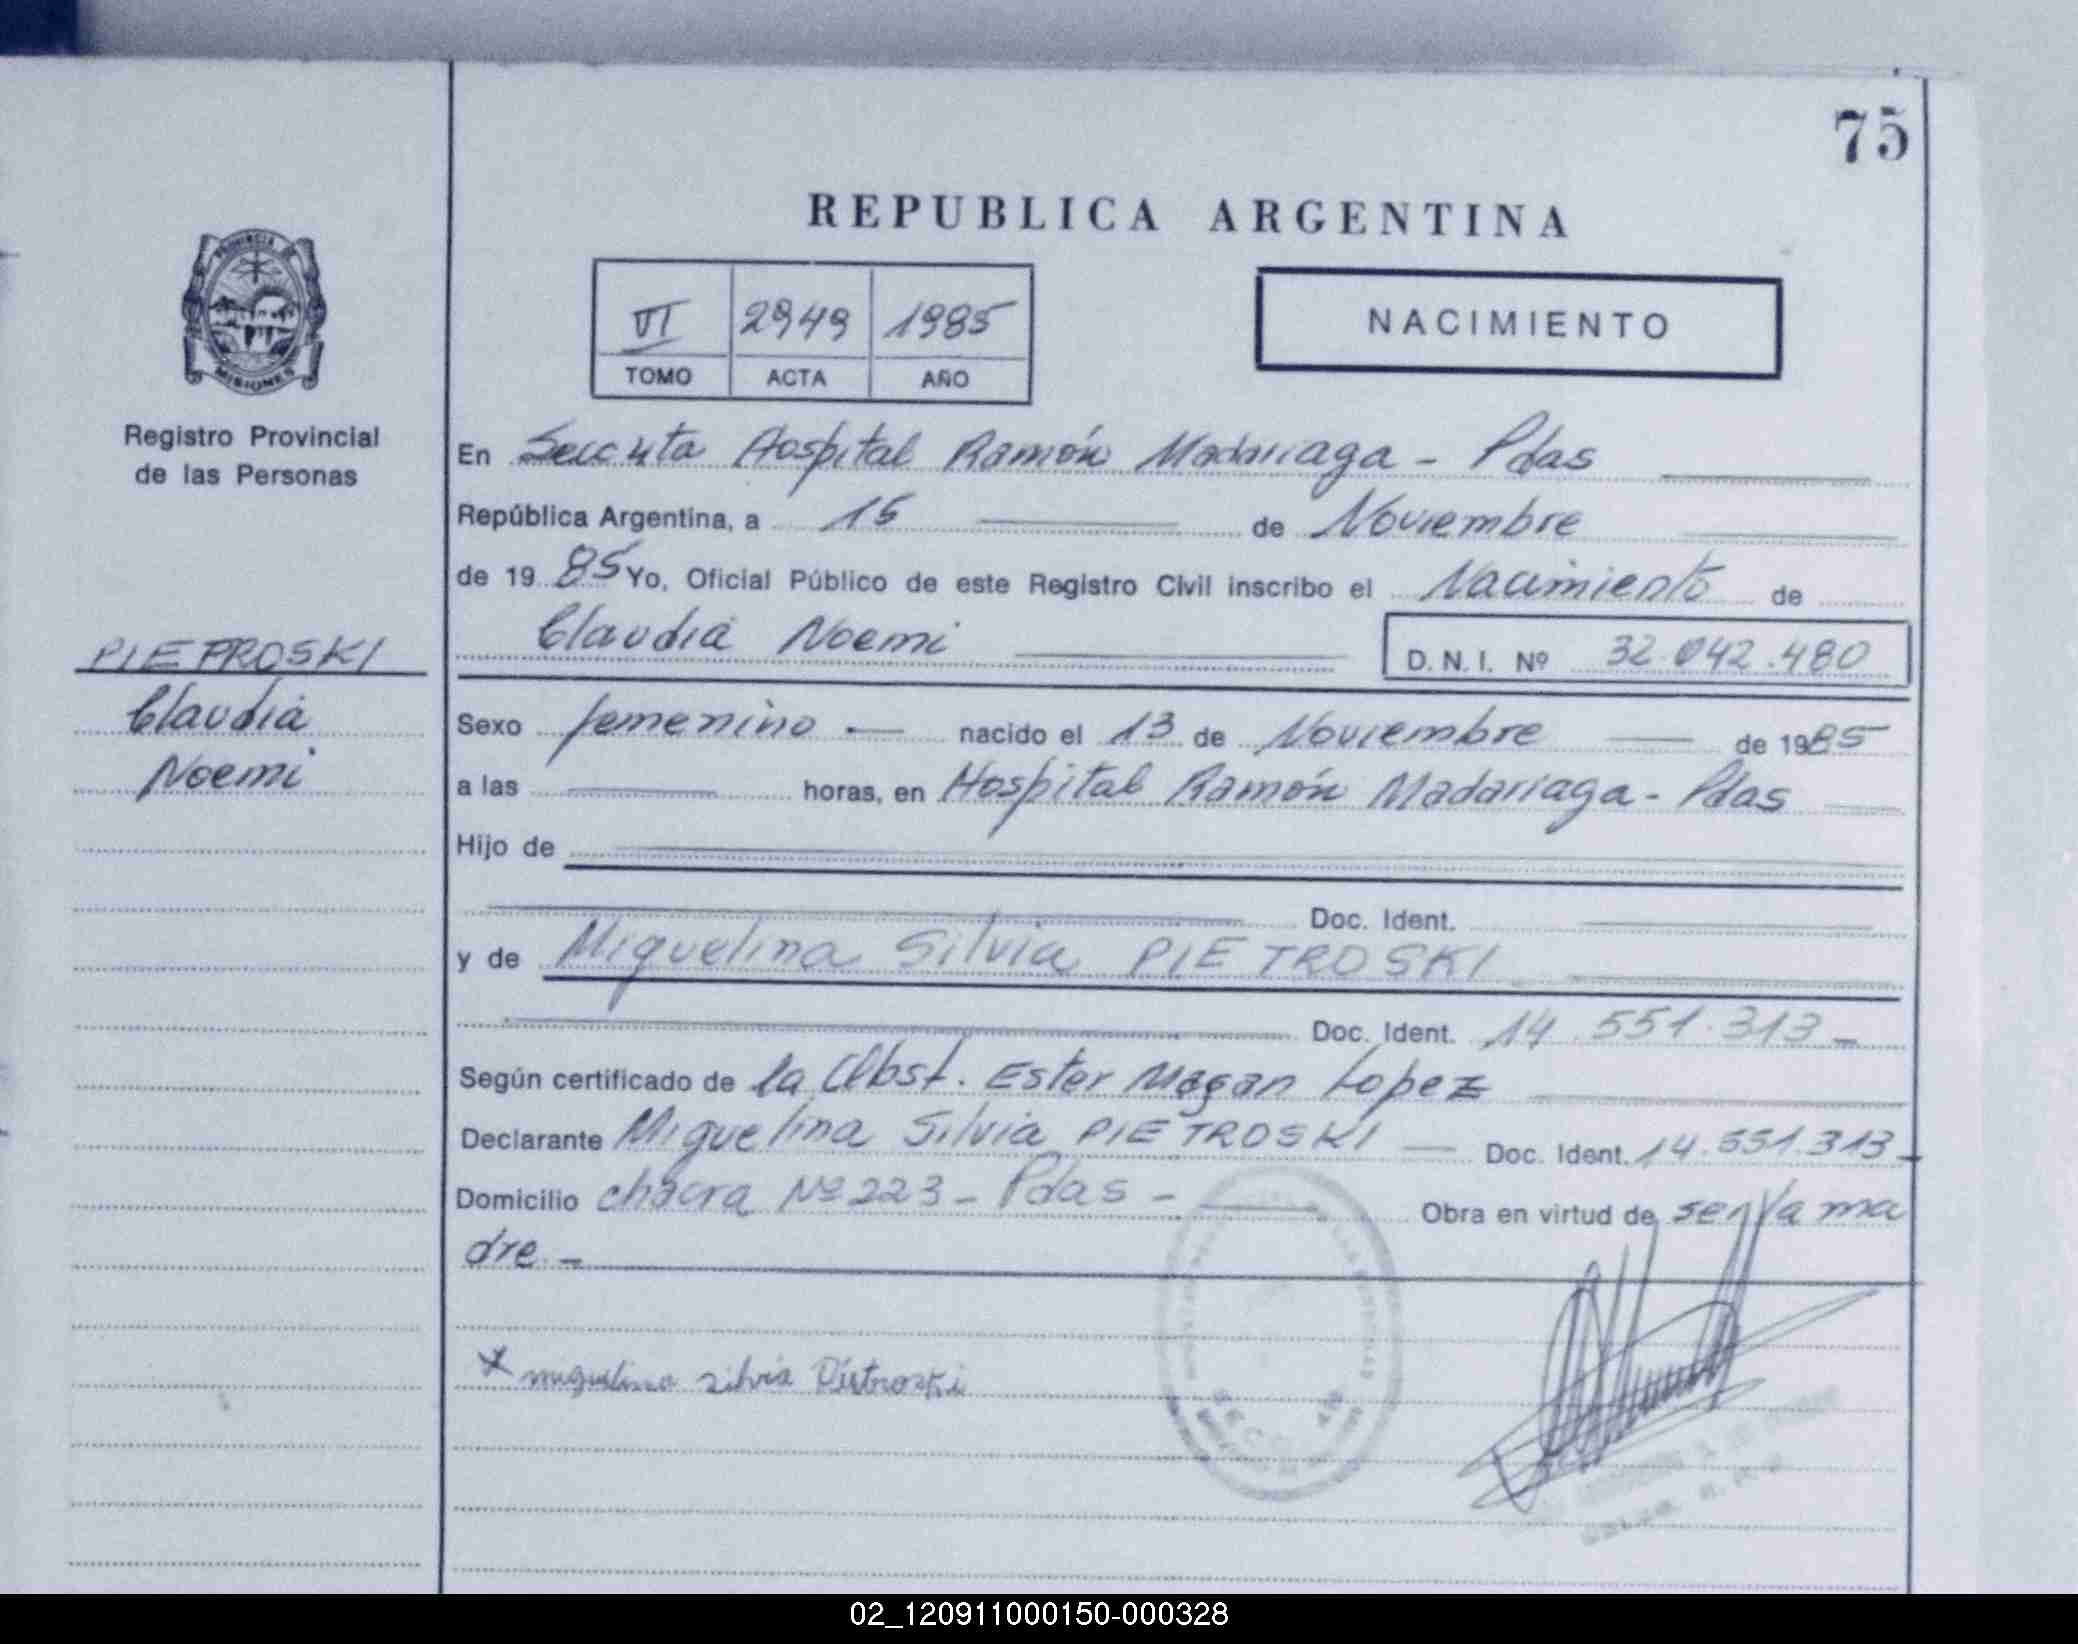 75
REPUBLICA ARGENTINA
PROVINCIA DE
MISIONES
VI 2949 1985
TOMO ACTA AÑO
NACIMIENTO
Registro Provincial
de las Personas
En Secc 4ta Hospital Ramón Madariaga - Pdas
República Argentina, a 15 de Noviembre
de 19 85 Yo, Oficial Público de este Registro Civil inscribo el Nacimiento de
Claudia Noemi D. N. I. Nº 32.042.480
PIETROSKI
Claudia
Noemi
Sexo femenino nacido el 13 de Noviembre de 1985
a las horas, en Hospital Ramón Madariaga - Pdas
Hijo de
Doc. Ident.
y de Miguelina Silvia PIETROSKI
Doc. Ident. 14.551.313 -
Según certificado de la Obst. Ester Magan Lopez
Declarante Miguelina Silvia PIETROSKI Doc. Ident. 14.551.313 -
Domicilio chacra Nº 223 - Pdas - Obra en virtud de ser la ma
dre. -
x miguelina silvia Pietroski
02_120911000150-000328